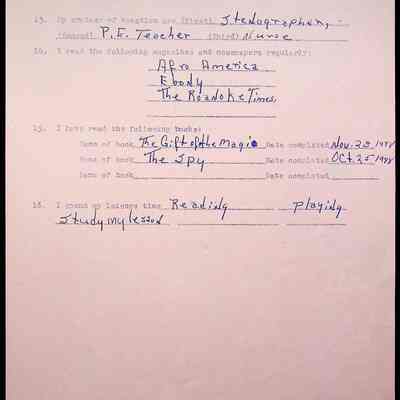 13. My choices of vocation are (first) Stenographer,
(Second) P.E. Teacher (Third) Nurse
14. I read the following magazines and newspapers regularly:
Afro America
Ebony
The Roanoke Times
15. I have read the following books:
Name of book The Gift of the Magic Date completed Nov. 23,
Name of book The Spy Date completed Oct. 25
Name of book Date completed
16. I spend my leisure time Reading playing
Study my lesson